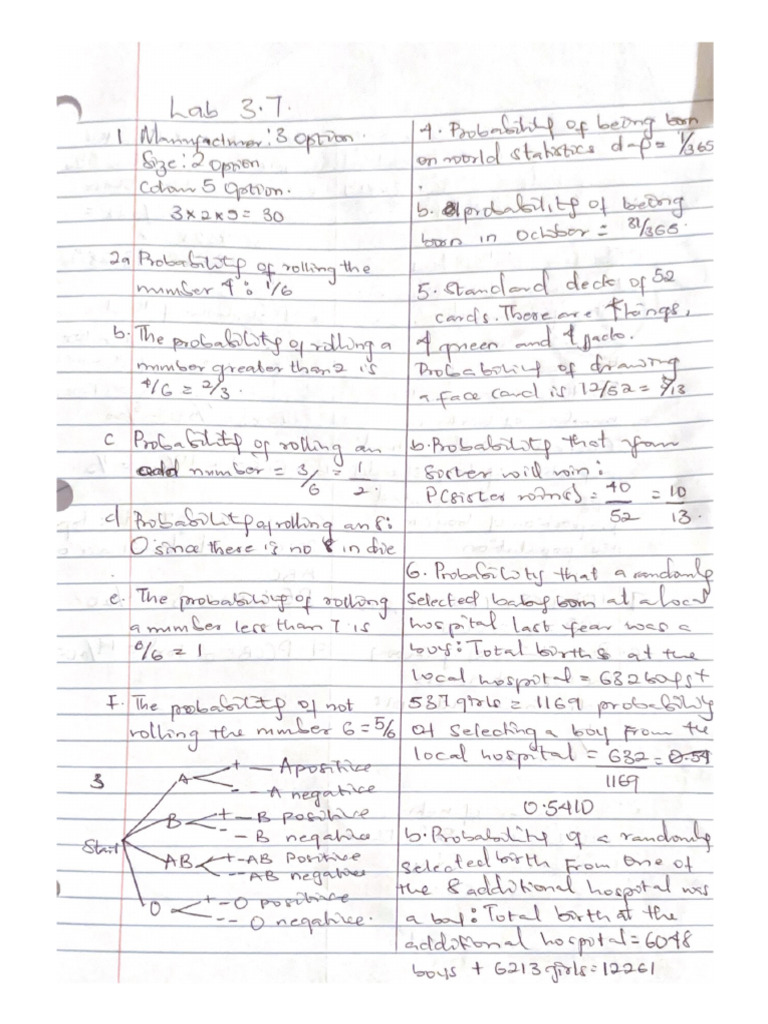 Lab 3.7.
1 Manufacturer: 3 option.
Size: 2 option
Colour 5 option.
3 x 2 x 5 = 30
2a Probability of rolling the
number 4: 1/6
b. The probability of rolling a
number greater than 2 is
4/6 = 2/3.
c Probability of rolling an
odd number = 3/6 = 1/2.
d Probability of rolling an 8:
0 since there is no 8 in die
e. The probability of rolling
a number less than 7 is
6/6 = 1
F. The probability of not
rolling the number 6 = 5/6
3
Start
A + - A positive
- - A negative
B + - B positive
- - B negative
AB + - AB Positive
- - AB negative
O + - O positive
- - O negative.
4. Probability of being born
on world statistics day = 1/365
.
b. probability of being
born in October = 31/365.
5. Standard deck of 52
cards. There are 4 kings,
4 queen and 4 jack.
Probability of drawing
a face card is 12/52 = 3/13
b. Probability that your
sister will win:
P(sister wins) = 40/52 = 10/13.
6. Probability that a randomly
selected baby born at a local
hospital last year was a
boy: Total births at the
local hospital = 632 boys +
537 girls = 1169 probability
of selecting a boy from the
local hospital = 632/1169 = 0.54
0.5410
b. Probability of a randomly
selected birth from one of
the 8 additional hospital was
a boy: Total birth at the
additional hospital = 6048
boys + 6213 girls = 12261